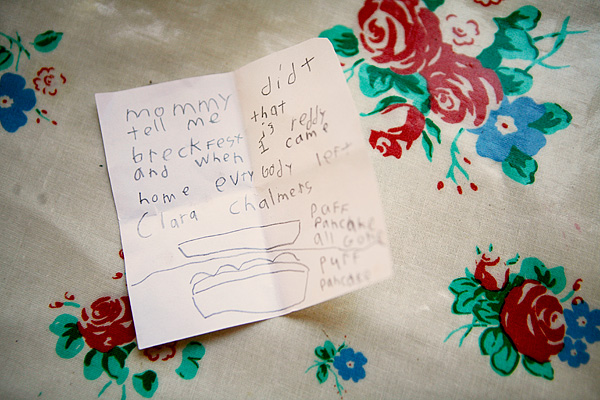 mommy didt
tell me that
breckfest is reddy
and when I came
home evry body left
Clara Chalmers
puff
pancake
all gone
puff
pancake